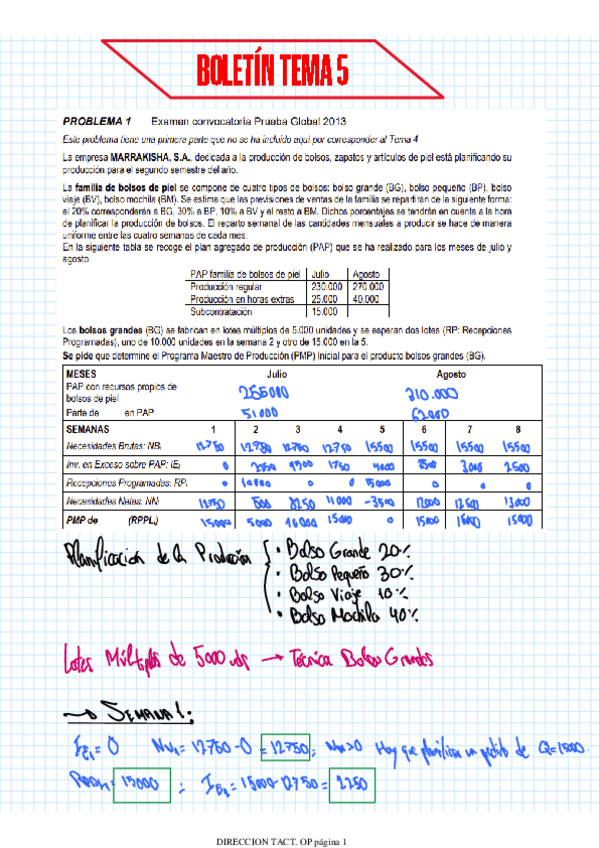 BOLETÍN TEMA 5
PROBLEMA 1 Examen convocatoria Prueba Global 2013
Este problema tiene una primera parte que no se ha incluido aquí por corresponder al Tema 4
La empresa MARRAKISHA, S.A., dedicada a la producción de bolsos, zapatos y artículos de piel está planificando su
producción para el segundo semestre del año.
La familia de bolsos de piel se compone de cuatro tipos de bolsos: bolso grande (BG), bolso pequeño (BP), bolso
viaje (BV), bolso mochila (BM). Se estima que las previsiones de ventas de la familia se repartirán de la siguiente forma:
el 20% corresponderán a BG, 30% a BP, 10% a BV y el resto a BM. Dichos porcentajes se tendrán en cuenta a la hora
de planificar la producción de bolsos. El reparto semanal de las cantidades mensuales a producir se hace de manera
uniforme entre las cuatro semanas de cada mes.
En la siguiente tabla se recoge el plan agregado de producción (PAP) que se ha realizado para los meses de julio y
agosto.
PAP familia de bolsos de piel Julio Agosto
Producción regular 230.000 270.000
Producción en horas extras 25.000 40.000
Subcontratación 15.000
Los bolsos grandes (BG) se fabrican en lotes múltiplos de 5.000 unidades y se esperan dos lotes (RP: Recepciones
Programadas), uno de 10.000 unidades en la semana 2 y otro de 15.000 en la 5.
Se pide que determine el Programa Maestro de Producción (PMP) Inicial para el producto bolsos grandes (BG).
MESES Julio Agosto
PAP con recursos propios de
bolsos de piel 255000 310.000
Parte de en PAP 51000 62000
SEMANAS 1 2 3 4 5 6 7 8
Necesidades Brutas: NB 12750 12750 12750 12750 15500 15500 15500 15500
Inv. en Exceso sobre PAP: IE 0 2250 4500 1750 4000 3500 3000 2500
Recepciones Programadas: RP 0 10000 0 0 15000 0 0 0
Necesidades Netas: NN 12750 500 8250 11000 -3500 12000 12500 13000
PMP de (RPPL) 15000 5000 10000 15000 0 15000 15000 15000
Planificación de la Producción
· Bolso Grande 20%
· Bolso Pequeño 30%
· Bolso Viaje 10%
· Bolso Mochila 40%
Lotes Múltiplos de 5000 uds → Técnica Bolsos Grandes
→ SEMANA 1:
IE1 = 0 NN1 = 12750 - 0 = 12750; NN>0 Hay que planificar un pedido de Q=15000.
15000 ; IE2 = 15000-12750 = 2250
DIRECCION TACT. OP página 1